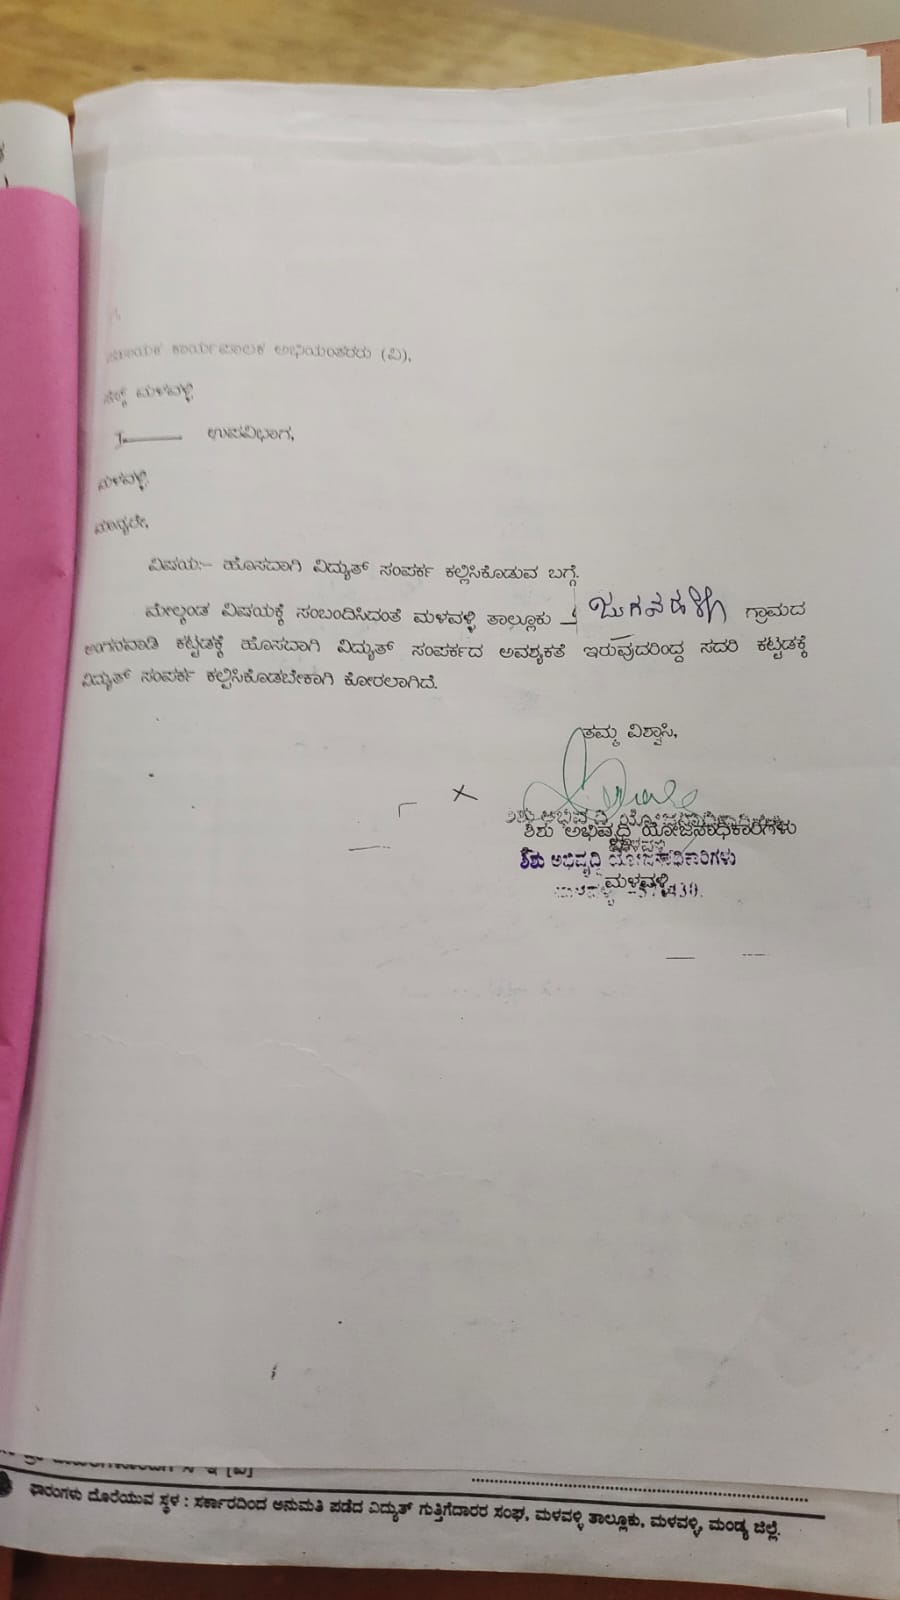 ಕಾರ್ಯಪಾಲಕ ಅಭಿಯಂತರರು (ವಿ),
ಸೆಸ್ಕ್ ಮಳವಳ್ಳಿ
ಉಪವಿಭಾಗ,
ಮಳವಳ್ಳಿ
ಮಾನ್ಯರೇ,
ವಿಷಯ:- ಹೊಸದಾಗಿ ವಿದ್ಯುತ್ ಸಂಪರ್ಕ ಕಲ್ಪಿಸಿಕೊಡುವ ಬಗ್ಗೆ.
ಮೇಲ್ಕಂಡ ವಿಷಯಕ್ಕೆ ಸಂಬಂದಿಸಿದಂತೆ ಮಳವಳ್ಳಿ ತಾಲ್ಲೂಕು ಗ್ರಾಮದ
ಅಂಗನವಾಡಿ ಕಟ್ಟಡಕ್ಕೆ ಹೊಸದಾಗಿ ವಿದ್ಯುತ್ ಸಂಪರ್ಕದ ಅವಶ್ಯಕತೆ ಇರುವುದರಿಂದ್ದ ಸದರಿ ಕಟ್ಟಡಕ್ಕೆ
ವಿದ್ಯುತ್ ಸಂಪರ್ಕ ಕಲ್ಪಿಸಿಕೊಡಬೇಕಾಗಿ ಕೋರಲಾಗಿದೆ.
ತಮ್ಮ ವಿಶ್ವಾಸಿ,
ಶಿಶು ಅಭಿವೃದ್ಧಿ ಯೋಜನಾಧಿಕಾರಿಗಳು
ಶಿಶು ಅಭಿವೃದ್ಧಿ ಯೋಜನಾಧಿಕಾರಿಗಳು
ಮಳವಳ್ಳಿ
ಫಾರಂಗಳು ದೊರೆಯುವ ಸ್ಥಳ : ಸರ್ಕಾರದಿಂದ ಅನುಮತಿ ಪಡೆದ ವಿದ್ಯುತ್ ಗುತ್ತಿಗೆದಾರರ ಸಂಘ, ಮಳವಳ್ಳಿ ತಾಲ್ಲೂಕು, ಮಳವಳ್ಳಿ, ಮಂಡ್ಯ ಜಿಲ್ಲೆ.